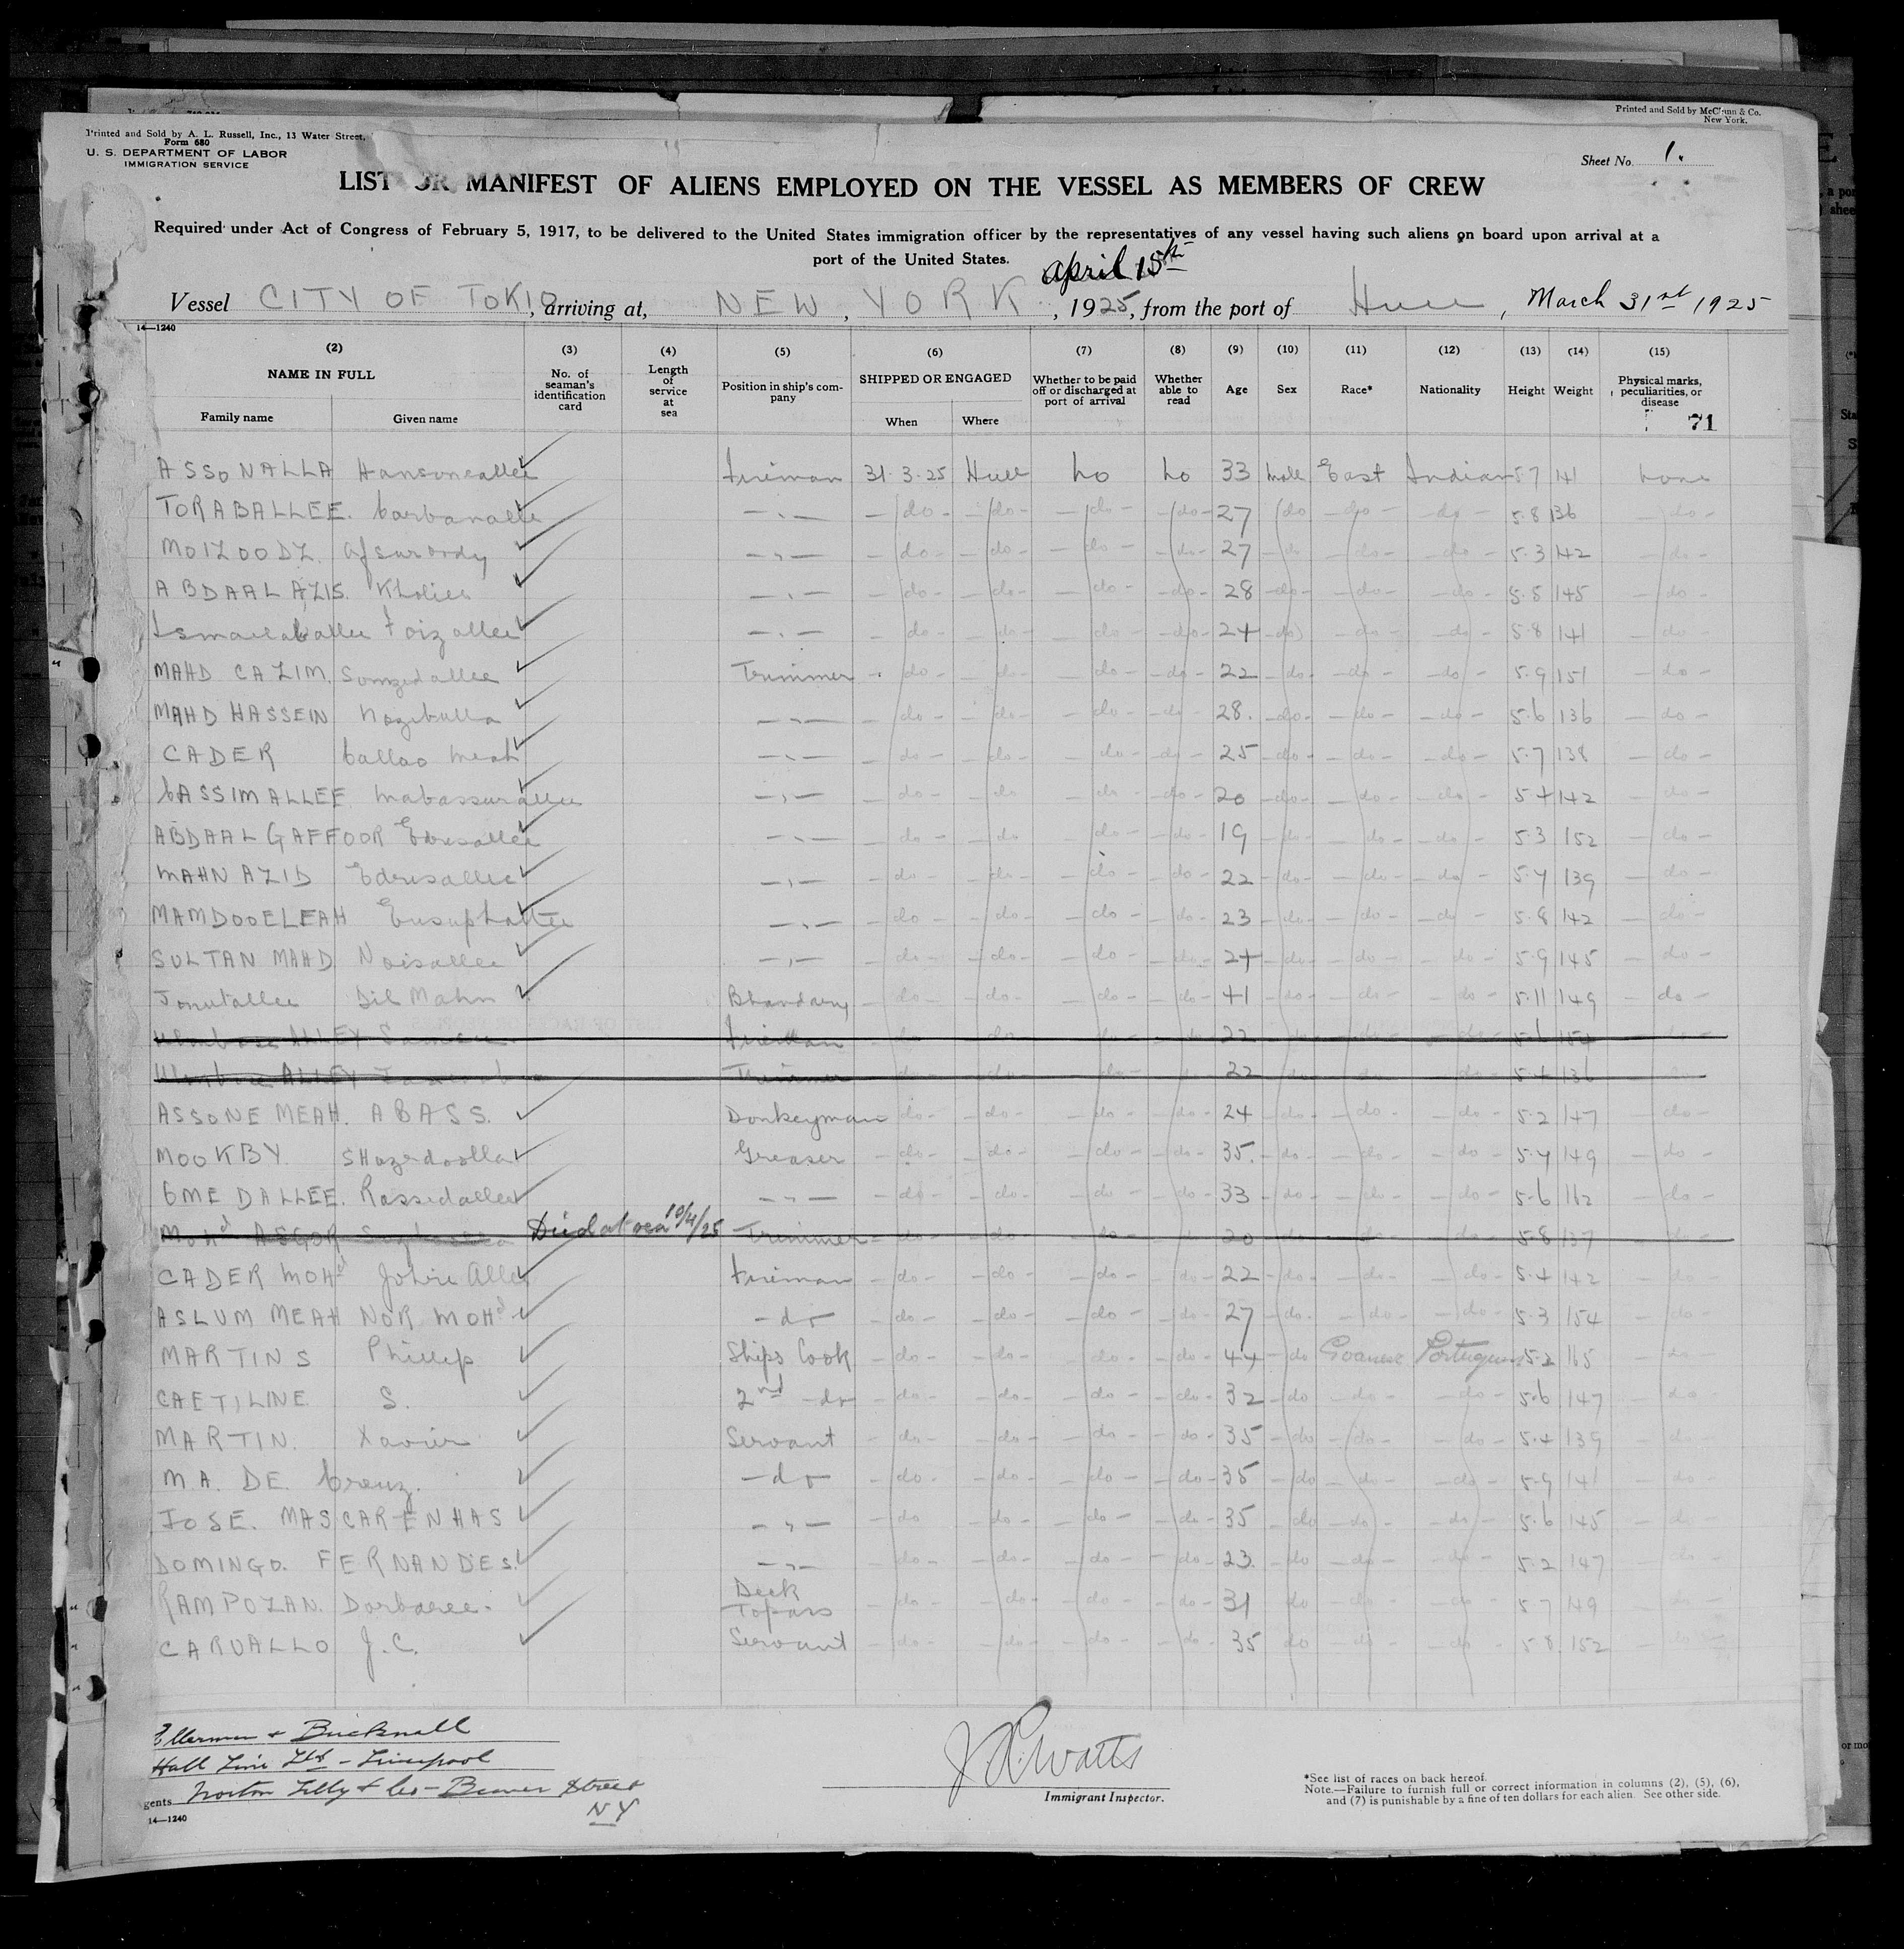 Printed and Sold by McC unn & Co.
New York.
Printed and Sold by A. L. Russell, Inc., 13 Water Street.
Form 680
U. S. DEPARTMENT OF LABOR
IMMIGRATION SERVICE
Sheet No. 1.
LIST OR MANIFEST OF ALIENS EMPLOYED ON THE VESSEL AS MEMBERS OF CREW
Required under Act of Congress of February 5, 1917, to be delivered to the United States immigration officer by the representatives of any vessel having such aliens on board upon arrival at a
port of the United States.
april 15th
Vessel CITY OF TOKIO, arriving at, NEW YORK, 1925, from the port of Hull, March 31st 1925
14—1240
(2) (3) (4) (5) (6) (7) (8) (9) (10) (11) (12) (13) (14) (15)
NAME IN FULL No. of seaman's identification card Length of service at sea Position in ship's company SHIPPED OR ENGAGED Whether to be paid off or discharged at port of arrival Whether able to read Age Sex Race* Nationality Height Weight Physical marks, peculiarities, or disease
Family name Given name When Where 71
ASSONALLA Hansoneallee Fireman 31.3.25 Hull No No 33 Male East Indian 5.7 141 None
TORABALLEE. Corbanallee — " — do do do do 27 do do do 5.8 136 do
MOIZOODZ. — " — do do do do 27 do do do 5.3 142 do
ABDAAL AZIS. — " — do do do do 28 do do do 5.5 145 do
Foizallee — " — do do do do 24 do do do 5.8 141 do
MAHD CAZIM. Trimmer do do do do 22 do do do 5.9 151 do
MAHD HASSEIN Nazibulla — " — do do do do 28. do do do 5.6 136 do
CADER Callao Meah — " — do do do do 25 do do do 5.7 138 do
CASSIMALLEE — " — do do do do 20 do do do 5.4 142 do
ABDAAL GAFFOOR — " — do do do do 19 do do do 5.3 152 do
MAHN AZID Edrisallee — " — do do do do 22 do do do 5.4 139 do
MAMDOOELEAH — " — do do do do 23 do do do 5.8 142 do
SULTAN MAHD Noisallee — " — do do do do 24 do do do 5.9 145 do
Jonutallee Dil Mahn Bhandary do do do do 41 do do do 5.11 149 do
ALLEY Fireman do do do do 22 do do do 5.6 154 do
ALLEY Trimmer do do do do 22 do do do 5.4 136 do
ASSONE MEAH. ABASS. Donkeyman do do do do 24 do do do 5.2 147 do
MOOKBY Greaser do do do do 35. do do do 5.4 149 do
OMEDALLEE. Rassedallee — " — do do do do 33 do do do 5.6 162 do
Mohd ASGOR Died at sea 10/4/25 Trimmer do do do do 20 do do do 5.8 137 do
CADER MOHd Fireman do do do do 22 do do do 5.4 142 do
ASLUM MEAH NOR MOHd — do — do do do do 27 do do do 5.3 154 do
MARTINS Phillip Ships Cook do do do do 44 do Goanese Portuguese 5.2 165 do
CAETILINE S. 2nd — do do do do do 32 do do do 5.6 147 do
MARTIN. Xavier Servant do do do do 35 do do do 5.4 139 do
MA. DE. Creuz. — do — do do do do 35 do do do 5.9 141 do
JOSE. MASCARENHAS — " — do do do do 35 do do do 5.6 145 do
DOMINGO. FERNANDES. — " — do do do do 23. do do do 5.2 147 do
RAMPOZAN. Dorbaree. Deck Topass do do do do 31 do do do 5.7 149 do
CARVALLO J. C. Servant do do do do 35 do do do 5.8 152
Ellerman & Bucknall
Hall Line Ltd — Liverpool
gents Norton Lilly & Co — Beaver Street
N Y
14—1240
Watts
Immigrant Inspector.
*See list of races on back hereof.
Note.—Failure to furnish full or correct information in columns (2), (5), (6),
and (7) is punishable by a fine of ten dollars for each alien. See other side.